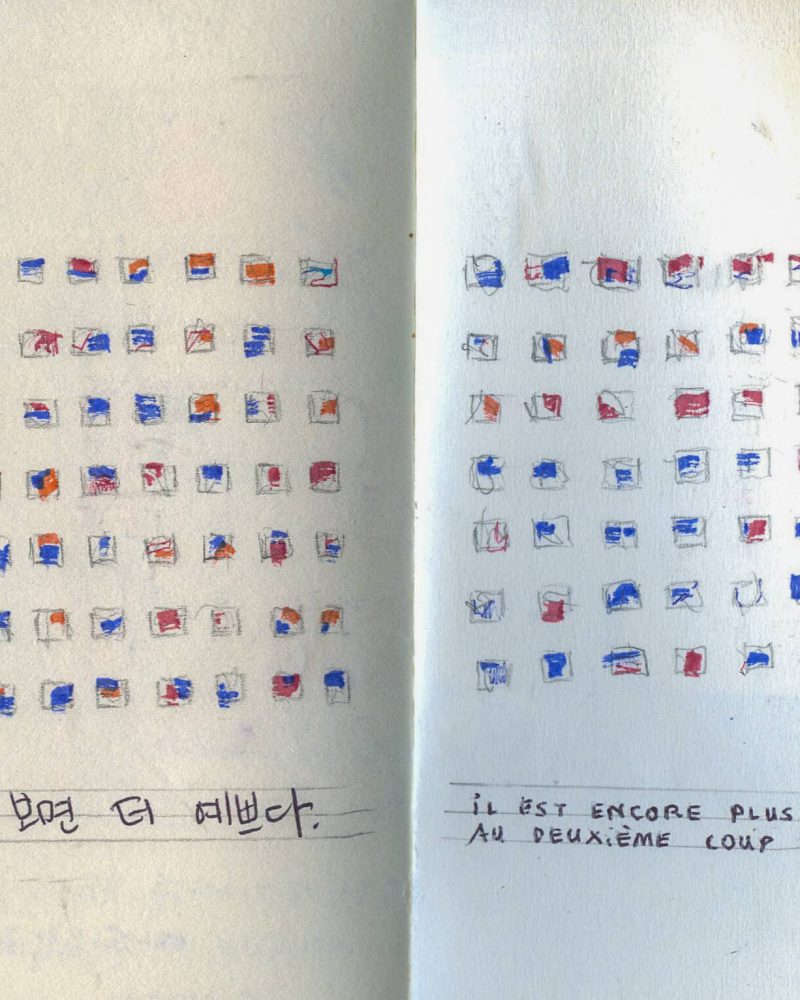 보면 더 예쁘다.
IL EST ENCORE PLUS
AU DEUXIÈME COUP